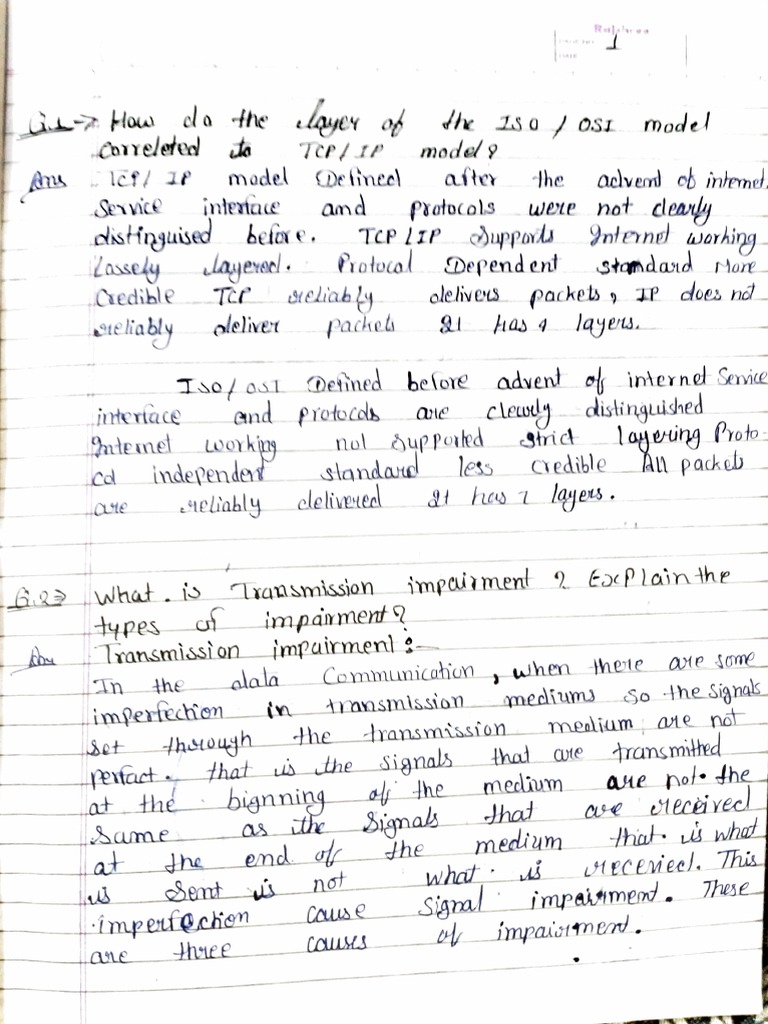 1
Q.1→ How do the layer of the ISO / OSI model
correleted to TCP/IP model?
Ans TCP/ IP model Defined after the advent of internet.
Service interface and protocols were not clearly
distinguised before. TCP/IP Supports Internet working
Lossely layered. Protocol Dependent standard More
Credible TCP reliably delivers packets, IP does not
reliably deliver packets It has 4 layers.
ISO/OSI Defined before advent of internet Service
interface and protocols are clearly distinguished
Internet working not supported strict layering Proto-
col independent standard less credible All packets
are reliably delivered It has 7 layers.
Q.2⇒ What is Transmission impairment ? Explain the
types of impairment?
Ans Transmission impairment :-
In the data Communication, when there are some
imperfection in transmission mediums so the signals
set through the transmission medium are not
perfact. that is the signals that are transmitted
at the bignning of the medium are not the
same as the signals that are received
at the end of the medium that is what
is sent is not what is receried. This
imperfection cause signal impairment. These
are three causes of impairment.